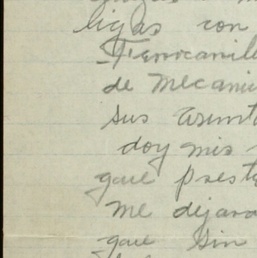 ligas con
Ferrocarril
de Mecani
sus asunt
doy mis
que prest
me dejara
que sin